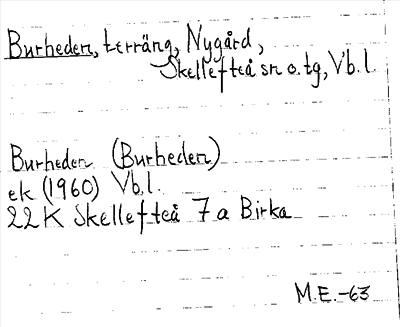 Burheden, terräng, Nygård,
Skellefteå sn o. tg, Vb. l.
Burheden (Burheden)
ek (1960) Vb.l.
22 K Skellefteå 7 a Birka
M.E.-63